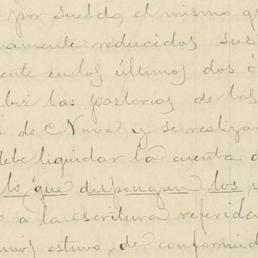 por sueldo, el mismo q
amente reducidos sus
ente en los últimos dos ó
las pastorias de las
s de Nava y se realizar
debe liquidar la cuenta d
lo que dispongan los
o á la escritura referida
mos estuvo, de conformid